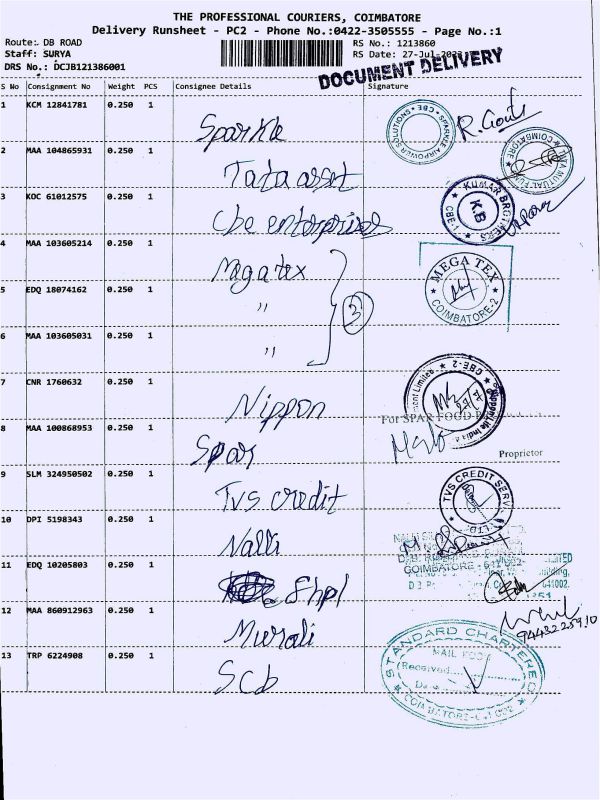 THE PROFESSIONAL COURIERS, COIMBATORE
Delivery Runsheet - PC2 - Phone No.:0422-3505555 - Page No.:1
Route: DB ROAD RS No.: 1213860
Staff: SURYA RS Date: 27-Jul
DRS No.: DCJB121386001 DOCUMENT DELIVERY
S No Consignment No Weight PCS Consignee Details Signature
1 KCM 12841781 0.250 1 Sparkle SPARKSE AIRPOWER SOLUTIONS * CBE * R. Gouts
2 MAA 104865931 0.250 1 Tata asset TATA MUTUAL FUND COIMBATORE
3 KOC 61012575 0.250 1 Cbe enterprises KUMAR BROTHERS CBE-1 K.B
4 MAA 103605214 0.250 1 Megatex MEGA TEX COIMBATORE-2
5 EDQ 18074162 0.250 1 " 3
6 MAA 103605031 0.250 1 "
7 CNR 1760632 0.250 1 Nippon Nippon Life India CBE-2 ment Limited
For SPAR FOOD
8 MAA 100868953 0.250 1 Spar Proprietor
9 SLM 324950502 0.250 1 TVS credit TVS CREDIT SERV LTD
10 DPI 5198343 0.250 1 Nalli
COIMBATORE - 641002
11 EDQ 10205803 0.250 1 Shpl 641002.
12 MAA 860912963 0.250 1 Murali 9443225910
13 TRP 6224908 0.250 1 Scb STANDARD CHARTERED MAIL ROOM Received COIMBATORE